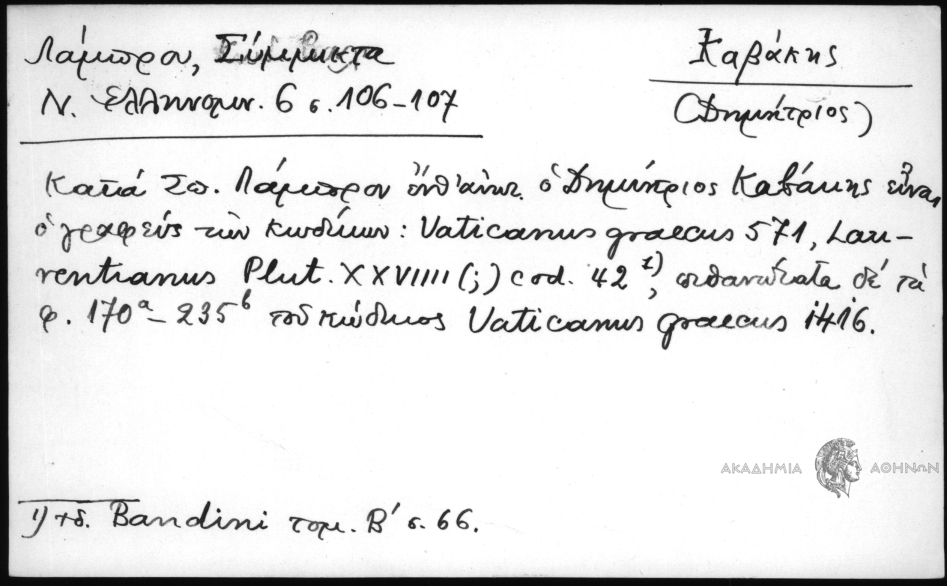 Λάμπρου, Σύμμικτα
Ν. Ἑλληνομν. 6 σ. 106-107
Καβάκης
(Δημήτριος)
Κατά Σπ. Λάμπρου ἔνθ' ἀνωτ. ὁ Δημήτριος Καβάκης εἶναι
ὁ γραφεύς τῶν κωδίκων: Vaticanus graecus 571, Lau-
rentianus Plut. XXVIIII (;) cod. 42 1), πιθανώτατα δέ τά
φ. 170a-235b τοῦ κώδικος Vaticanus graecus 1416.
ΑΚΑΔΗΜΙΑ ΑΘΗΝΩΝ
1) πδ. Bandini τομ. Β' σ. 66.